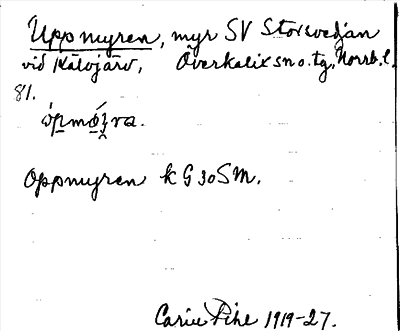 Uppmyren, myr SV Storsvedjan
vid Kälvjärv, Överkalix sn o. tg, Norrb. l.
81.
Oppmyren k G 30 SM.
Carin Pihl 1919-27.